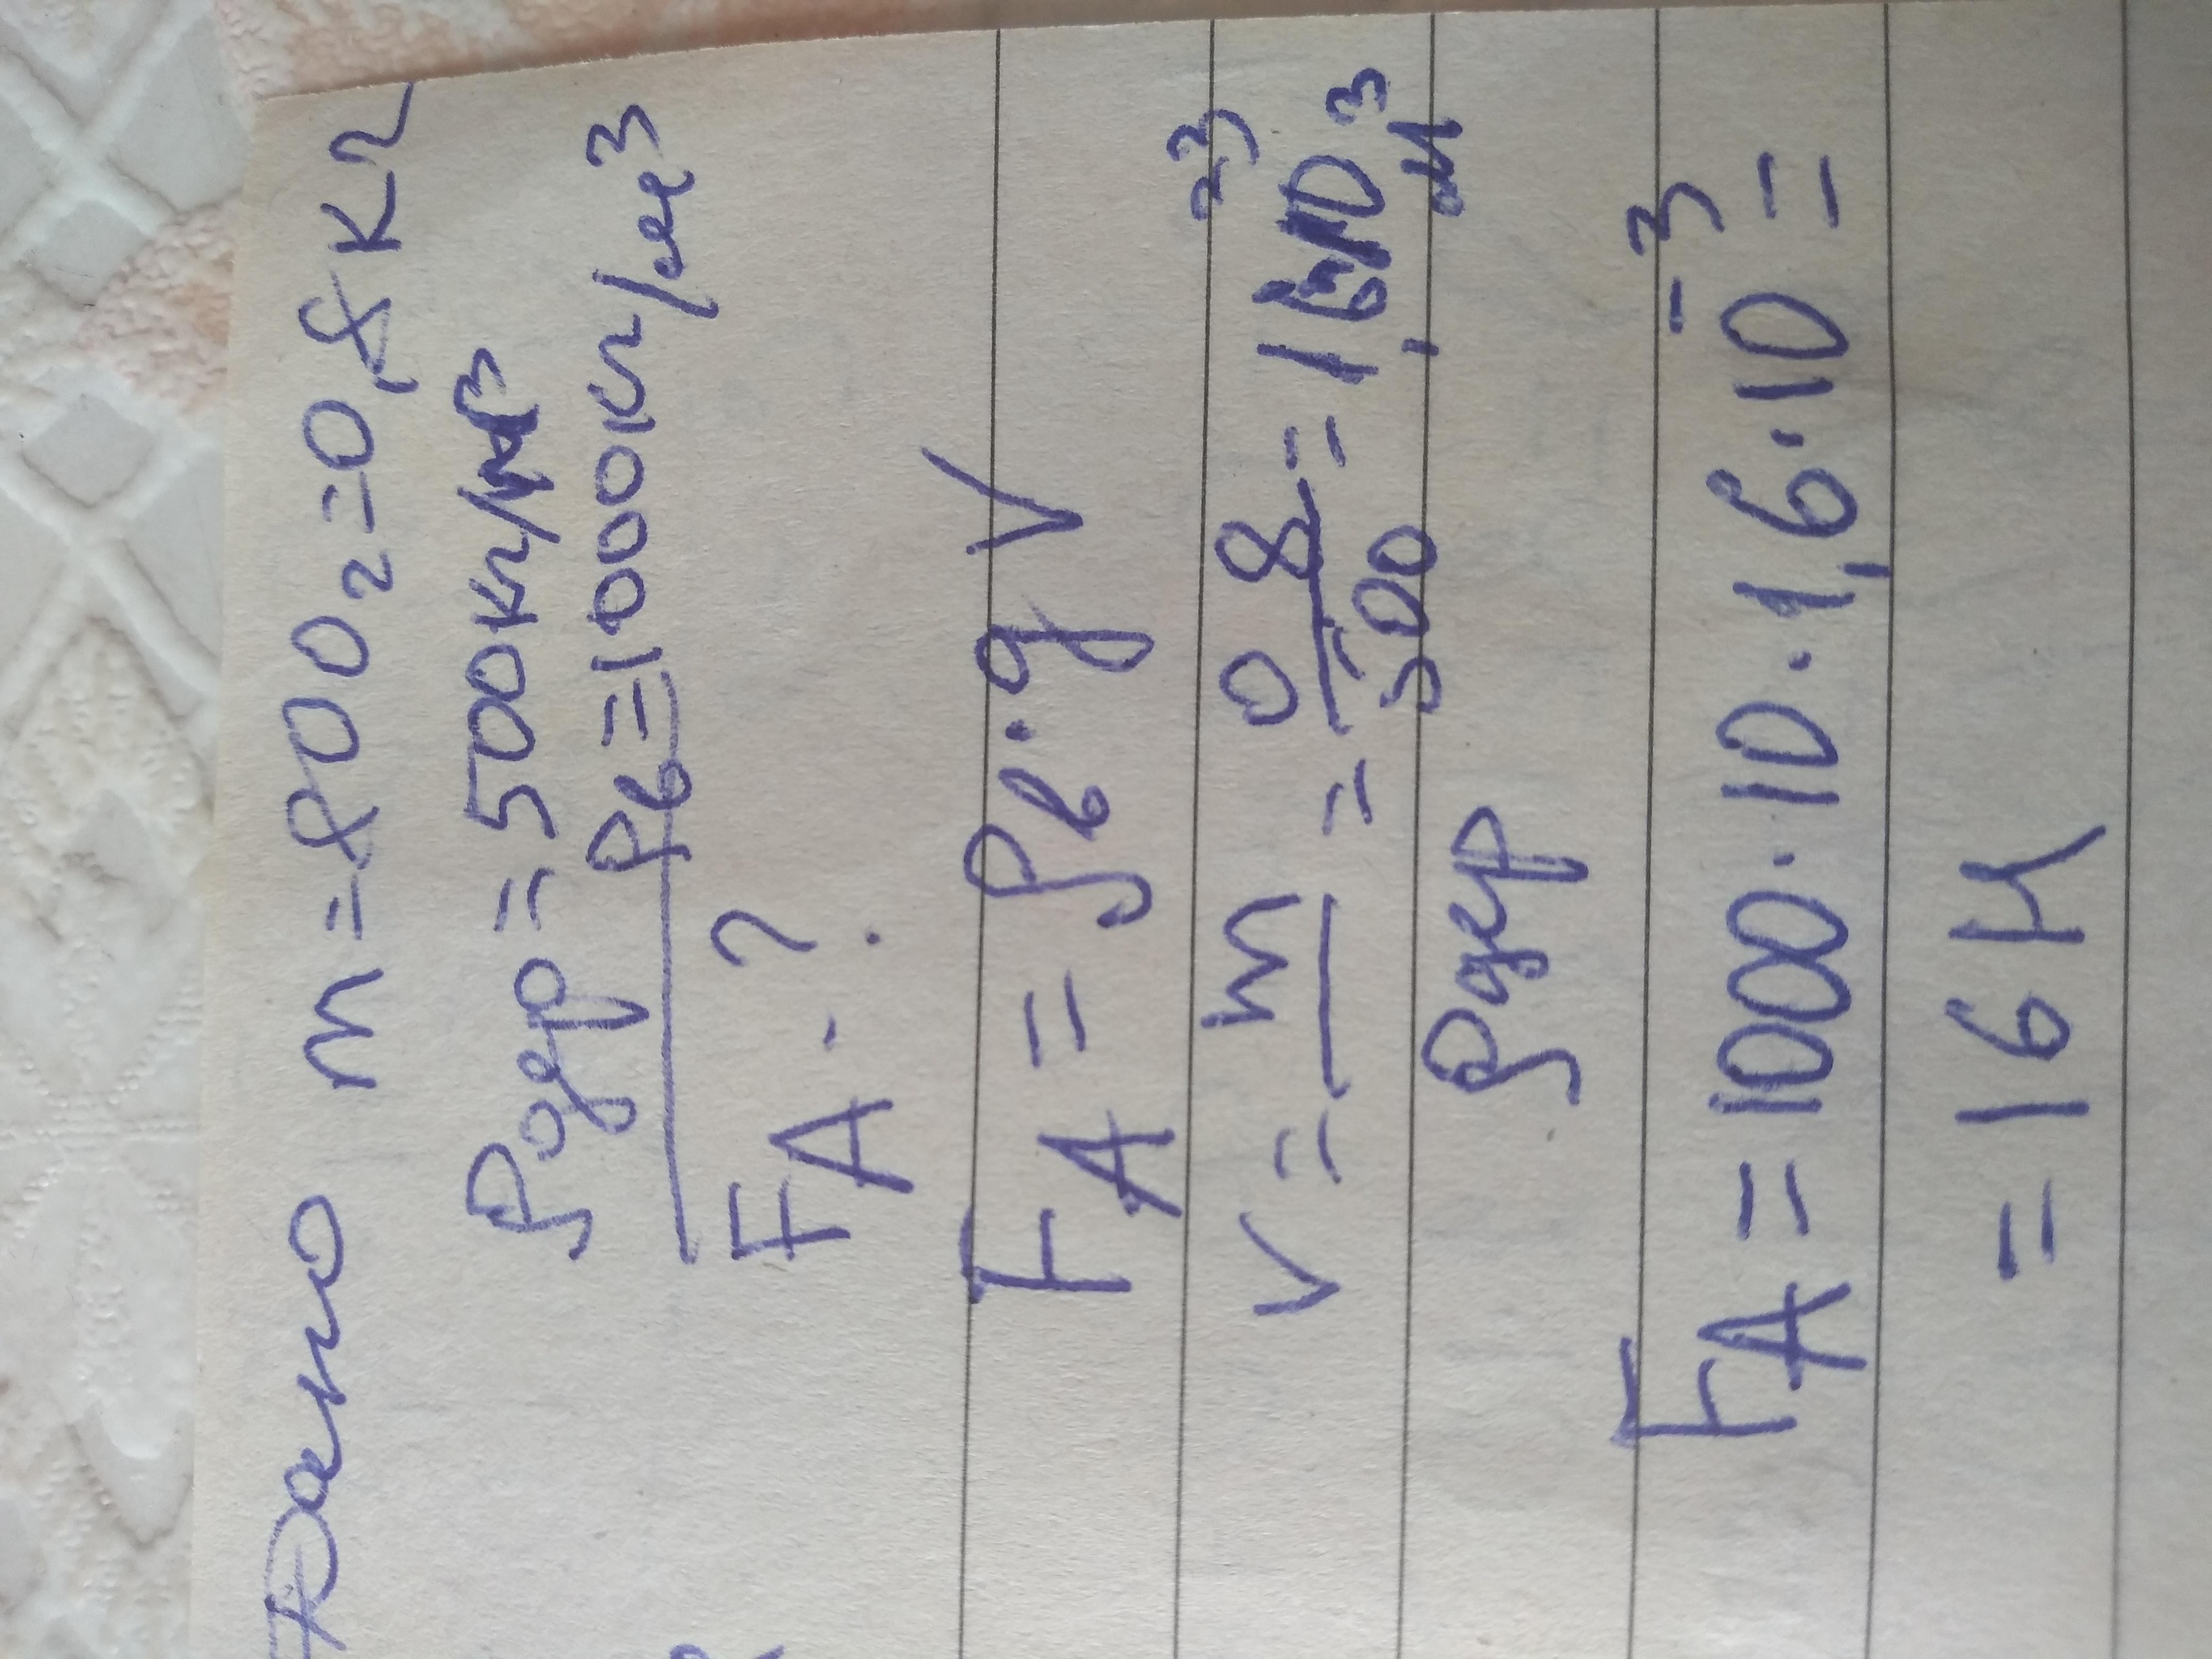 Дано m = 800г = 0,8 кг
ρдер = 500 кг/м³
ρв = 1000 кг/м³
FA - ?
FA = ρв · g V
V = m/ρдер = 0,8/500 = 1,6·10⁻³ м³
FA = 1000 · 10 · 1,6 · 10⁻³ =
= 16 Н